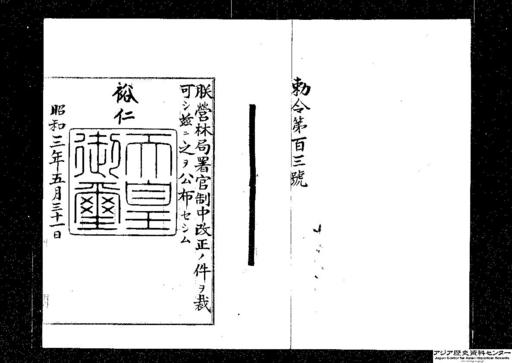 勅令第百三號
朕營林局署官制中改正ノ件ヲ裁
可シ茲ニ之ヲ公布セシム
裕仁
天皇御璽
昭和三年五月三十一日
アジア歴史資料センター
Japan Center for Asian Historical Records